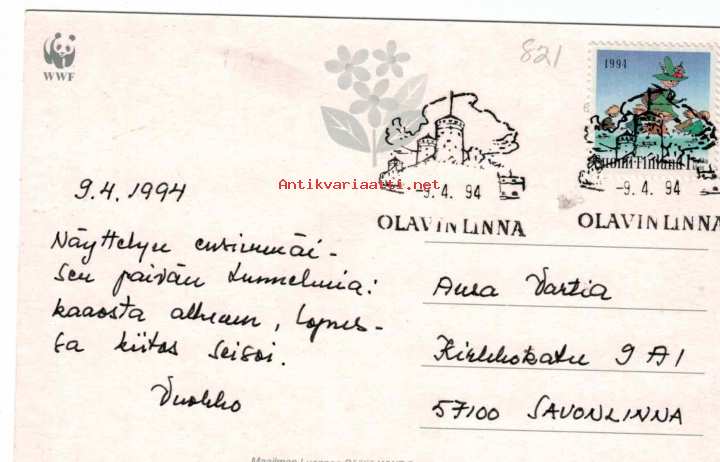 WWF
821
1994
Suomi Finland
Antikvariaatti.net
-9. 4. 94
OLAVINLINNA
-9. 4. 94
OLAVINLINNA
9.4.1994
Näyttelyn ensimmäi-
sen päivän tunnelmia:
kaaosta alkuun, lopus-
sa kiitos seisoi.
Vuokko
Aura Vartia
Kirkkokatu 9 A 1
57100 SAVONLINNA